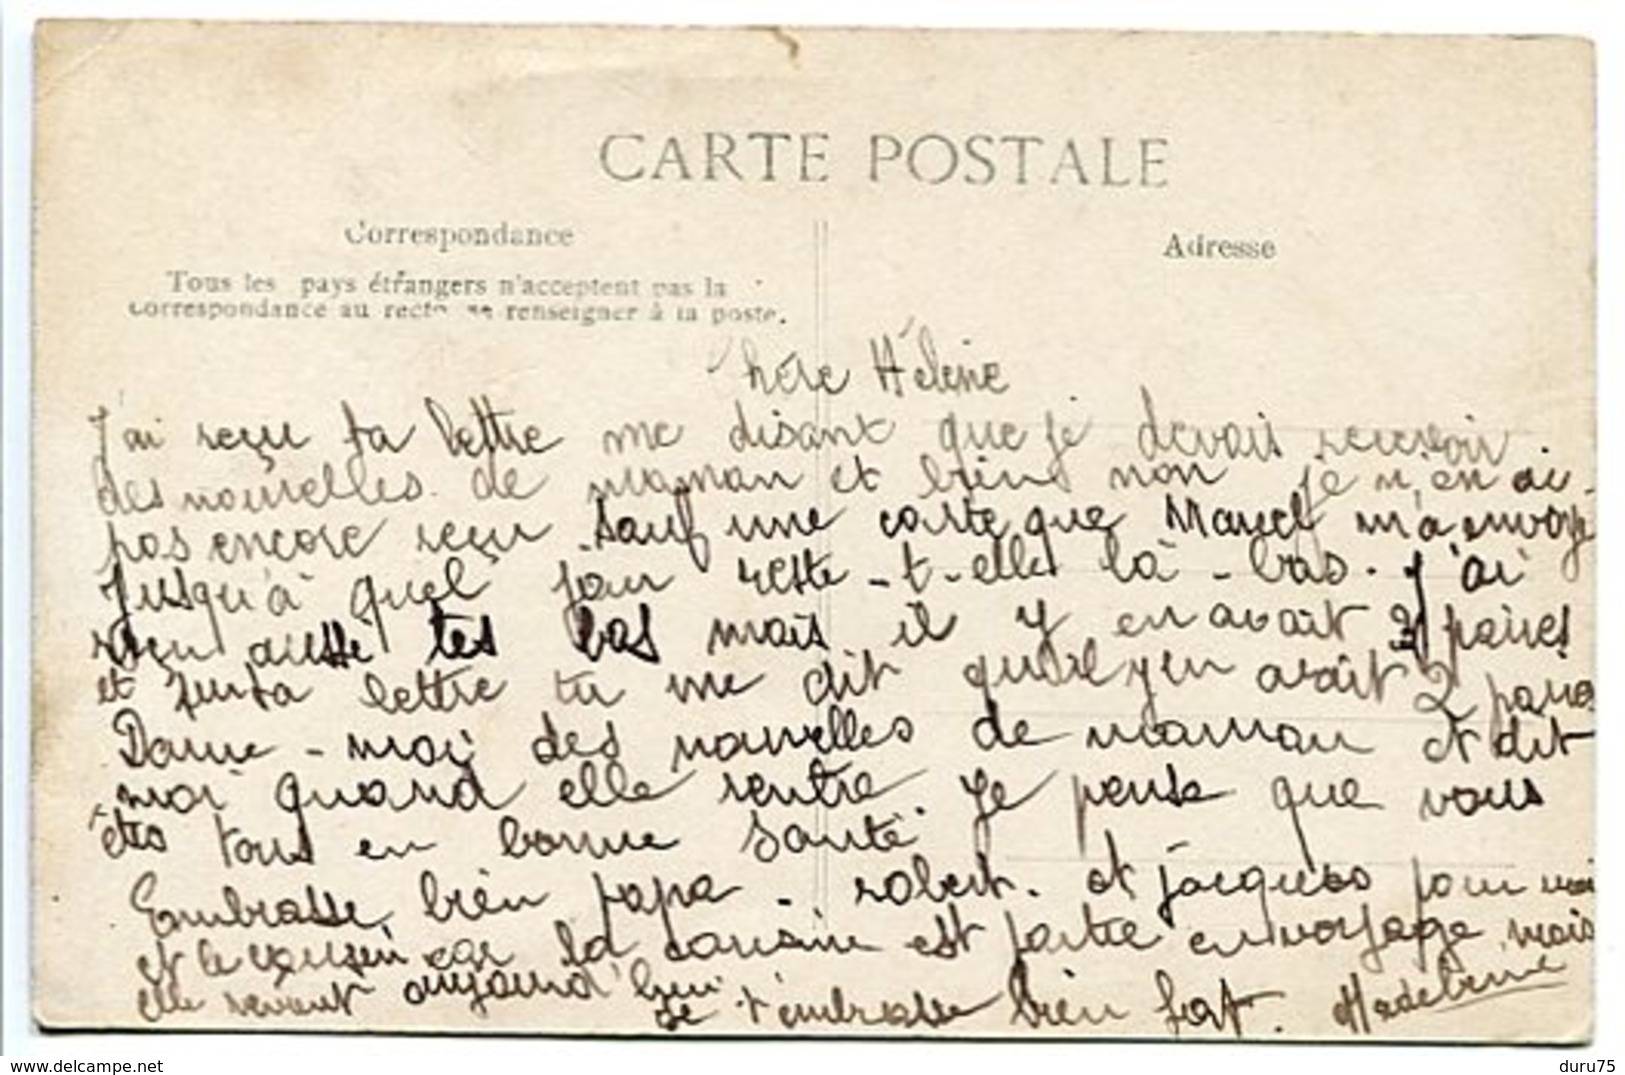 CARTE POSTALE
Correspondance
Adresse
Tous les pays étrangers n'acceptent pas la
correspondance au recto, se renseigner à la poste.
Chère Hélène
J'ai reçu ta lettre me disant que je devais recevoir
des nouvelles de maman et bien non je n'en ai
pas encore reçu sauf une carte que Marcel m'a envoyé
Jusqu'à quel jour reste-t-elle là-bas. J'ai
reçu aussi tes bas mais il y en avait 3 paires
et sur ta lettre tu me dit qu'il y en avait 2 paires
Donne-moi des nouvelles de maman et dit
moi quand elle rentre. Je pense que vous
êtes tous en bonne santé.
Embrasse bien papa - robert. et jacques pour moi
et le cousin car la cousine est partie en voyage mais
elle revient aujourd'hui
Je t'embrasse bien fort. Madeleine
www.delcampe.net
duru75